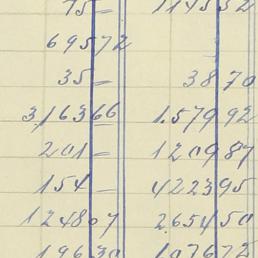 75 — 1145 52
695 72
35 — 38 70
3,163 66 1.579 92
201 — 1209 87
154 — 4223 95
1248 07 2.654 50
196 30 1076 72